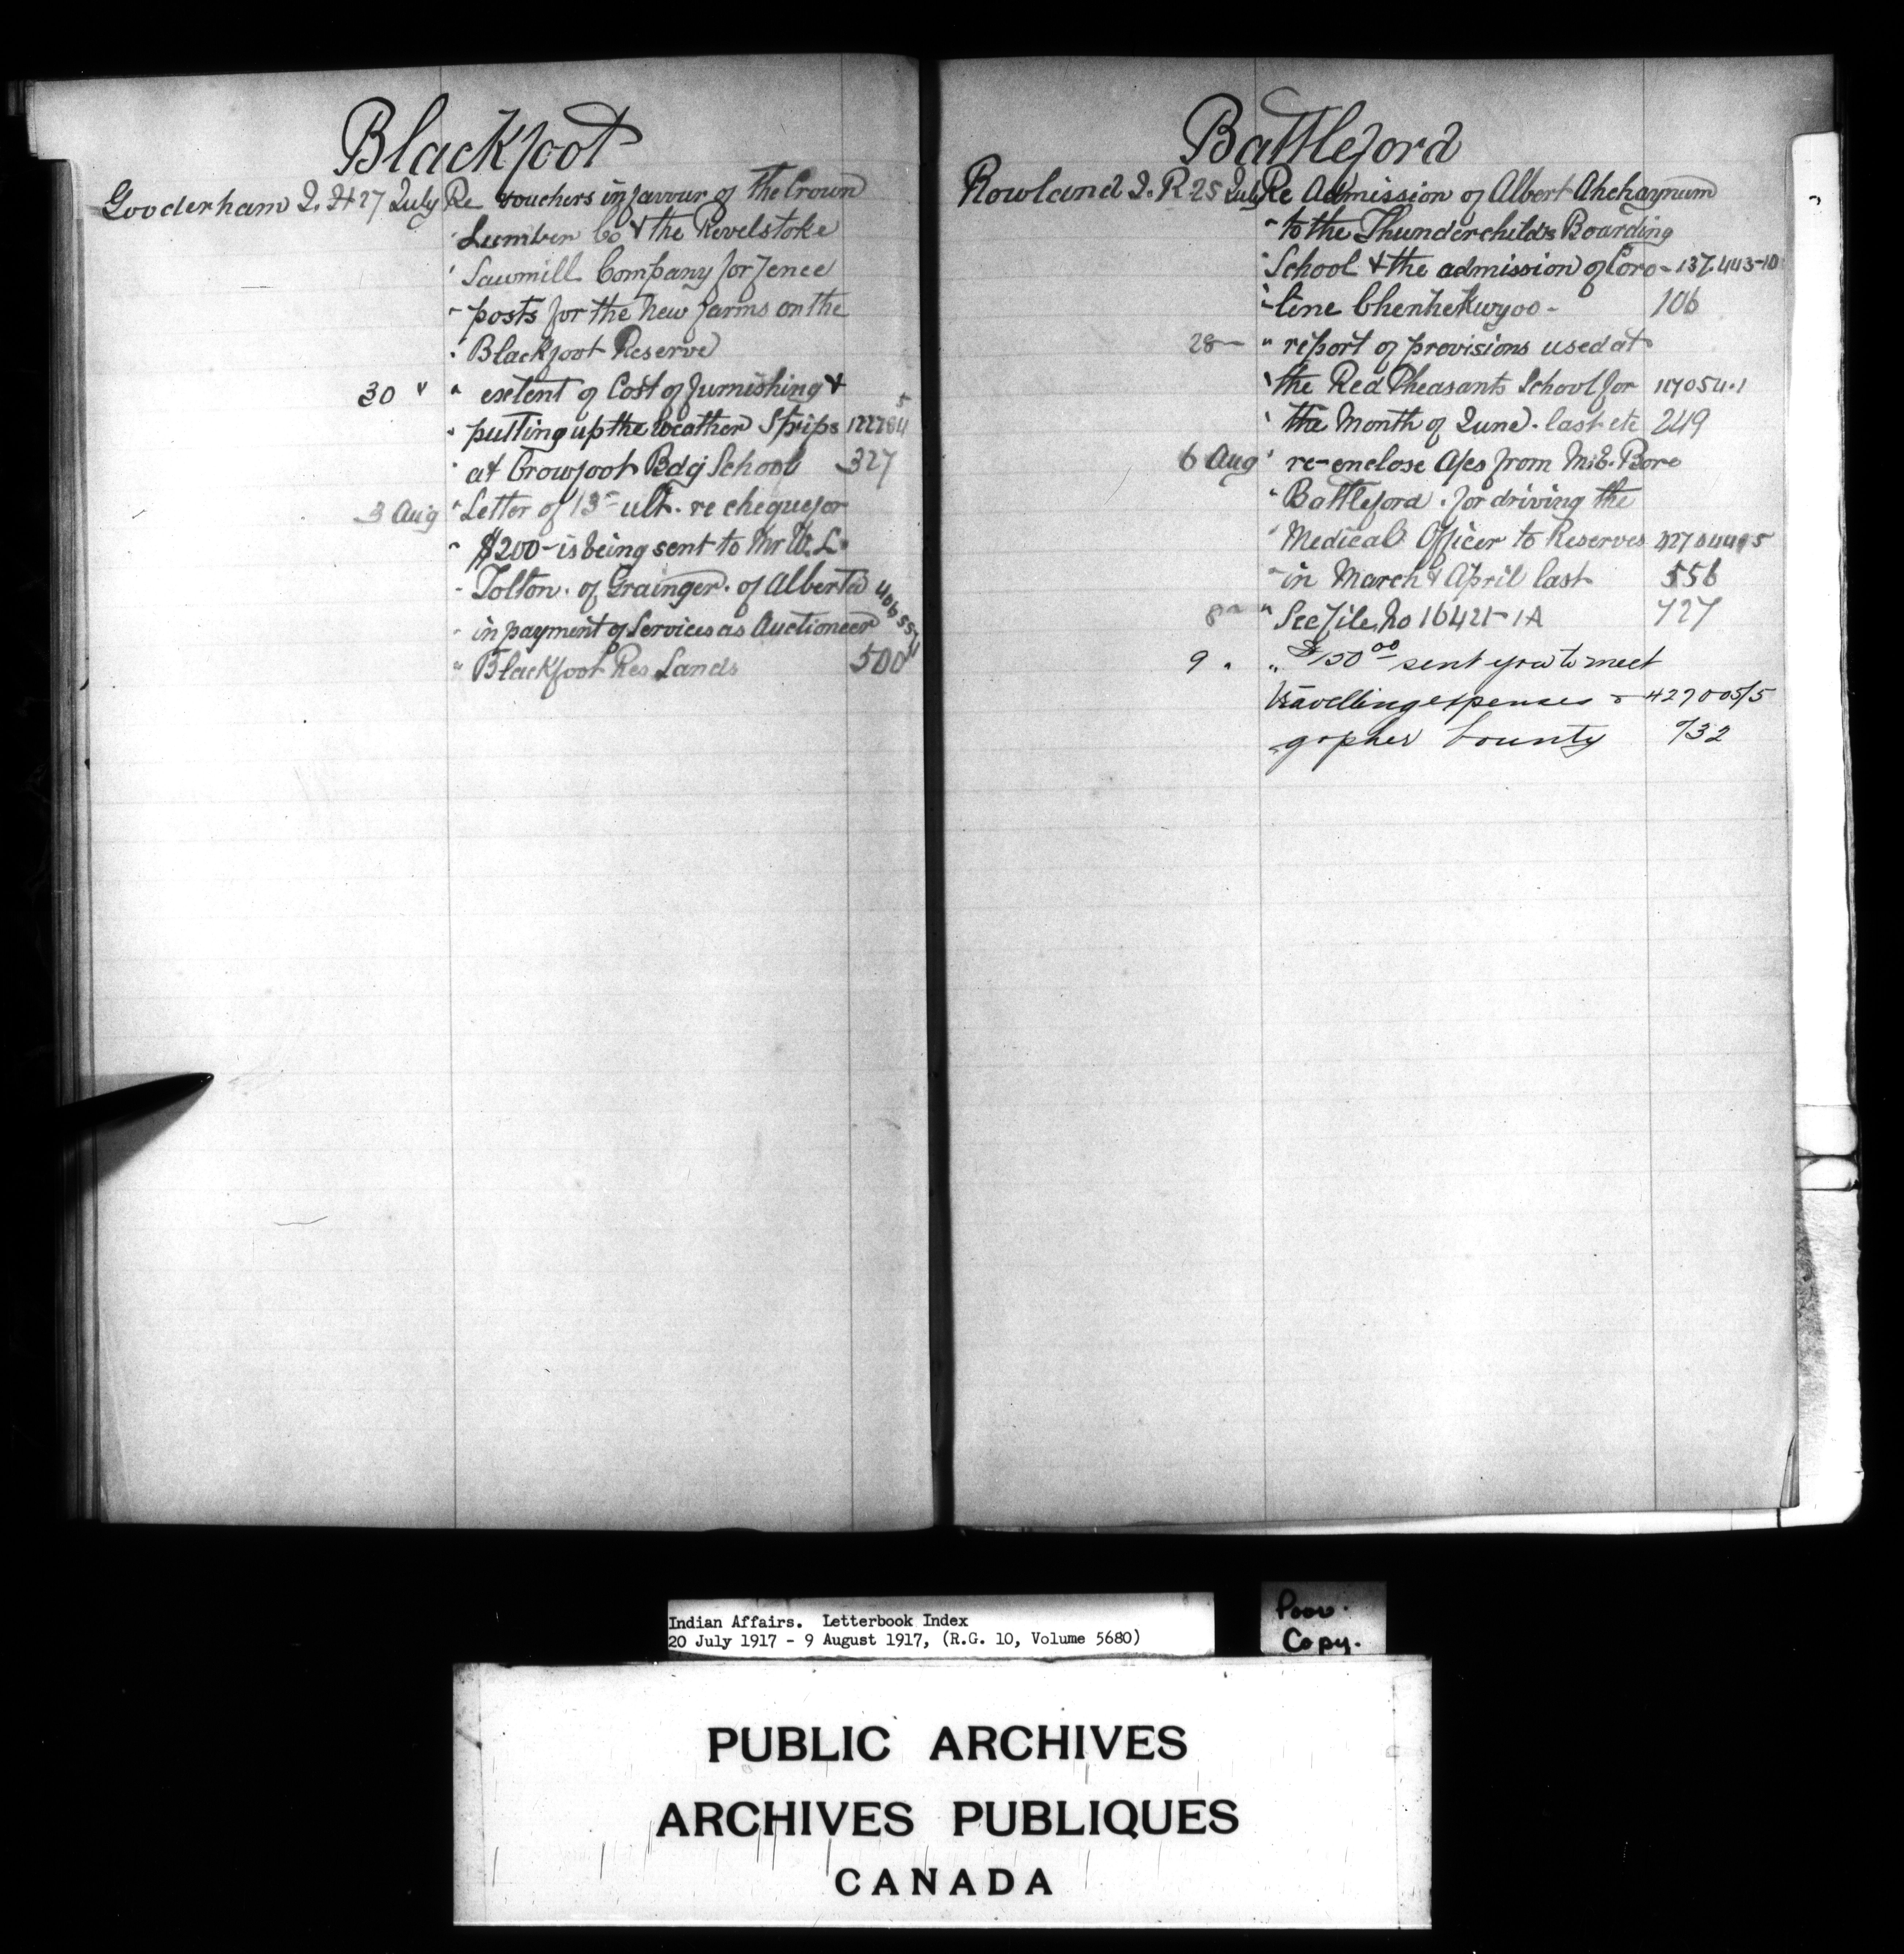 Blackfoot
Gooderham J. H 27 July Re vouchers in favour of the Crown
" Lumber Co & the Revelstoke
" Sawmill Company for fence
" posts for the new farms on the
" Blackfoot Reserve
30 " " extent of Cost of furnishing &
" putting up the weather Strips
" at Crowfoot Bdg School 327
3 Aug " Letter of 13th ult. re cheque for
" $200 - is being sent to Mr W. L.
" Tolton. of Grainger. of Alberta
" in payment of Services as Auctioneer 406557
" Blackfoot Res Lands 500
Battleford
Rowland J. R 25 July Re Admission of Albert Ahchaynum
" to the Thunderchilds Boarding
" School & the admission of Coro - 137,443-10
" line Chenhekwyoo - 106
28 " " report of provisions used at
" the Red Pheasants School for 117054-1
" the Month of June. last etc 249
6 Aug " re-enclose A/cs from M. E. Bore
" Battleford. for driving the
" Medical Officer to Reserves
" in March & April last 556
8 " " See file No 16421-1A 727
9 " " $150.00 sent you to meet
travelling expenses - 427005/5
gopher bounty 732
Indian Affairs. Letterbook Index
20 July 1917 - 9 August 1917, (R.G. 10, Volume 5680)
Poor.
Copy.
PUBLIC ARCHIVES
ARCHIVES PUBLIQUES
CANADA